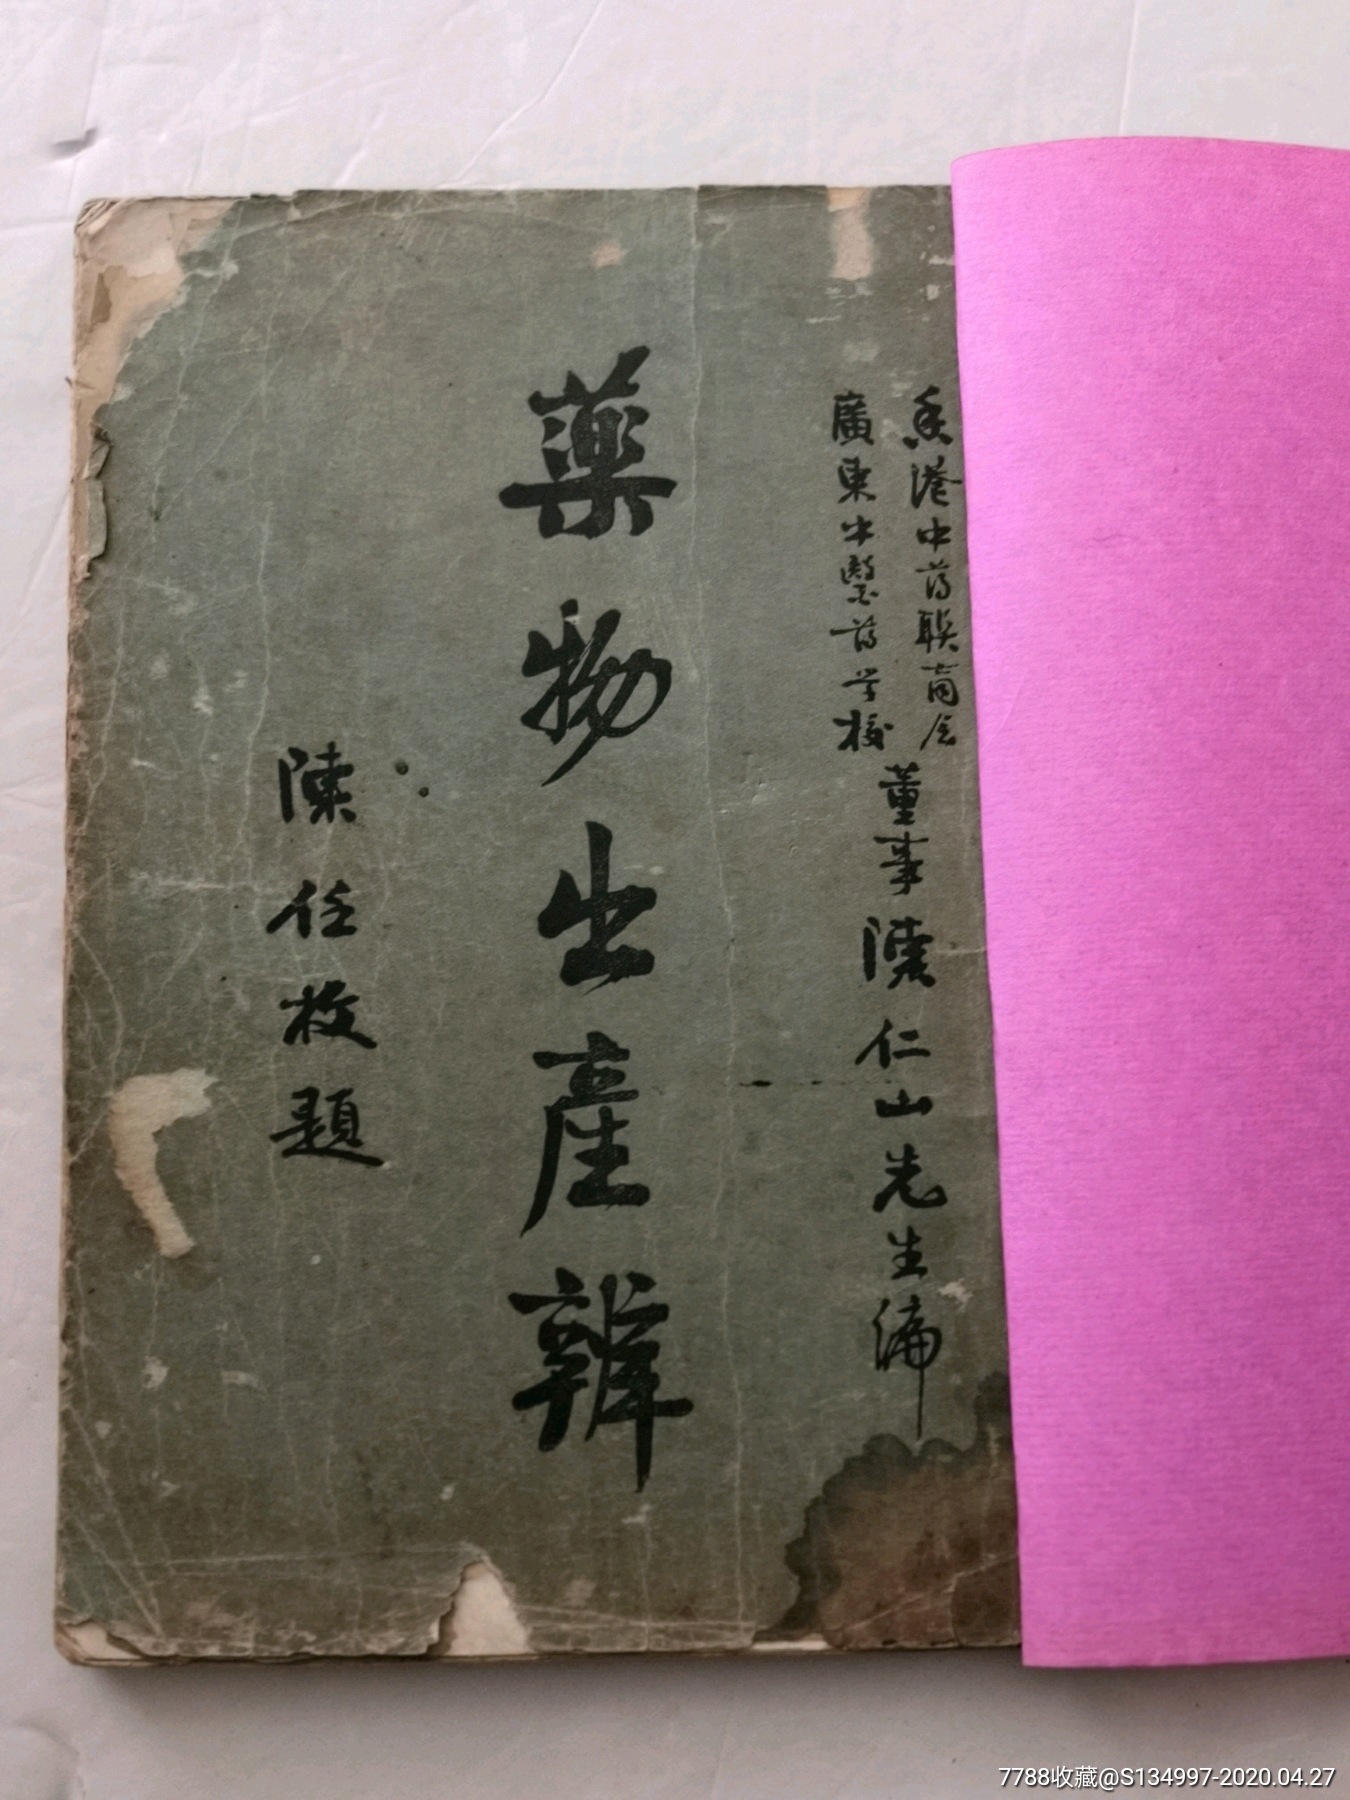 香港中药联商会
廣東中醫药学校
董事陳仁山先生编
藥物出產辨
陳任枚題
7788收藏@S134997-2020.04.27